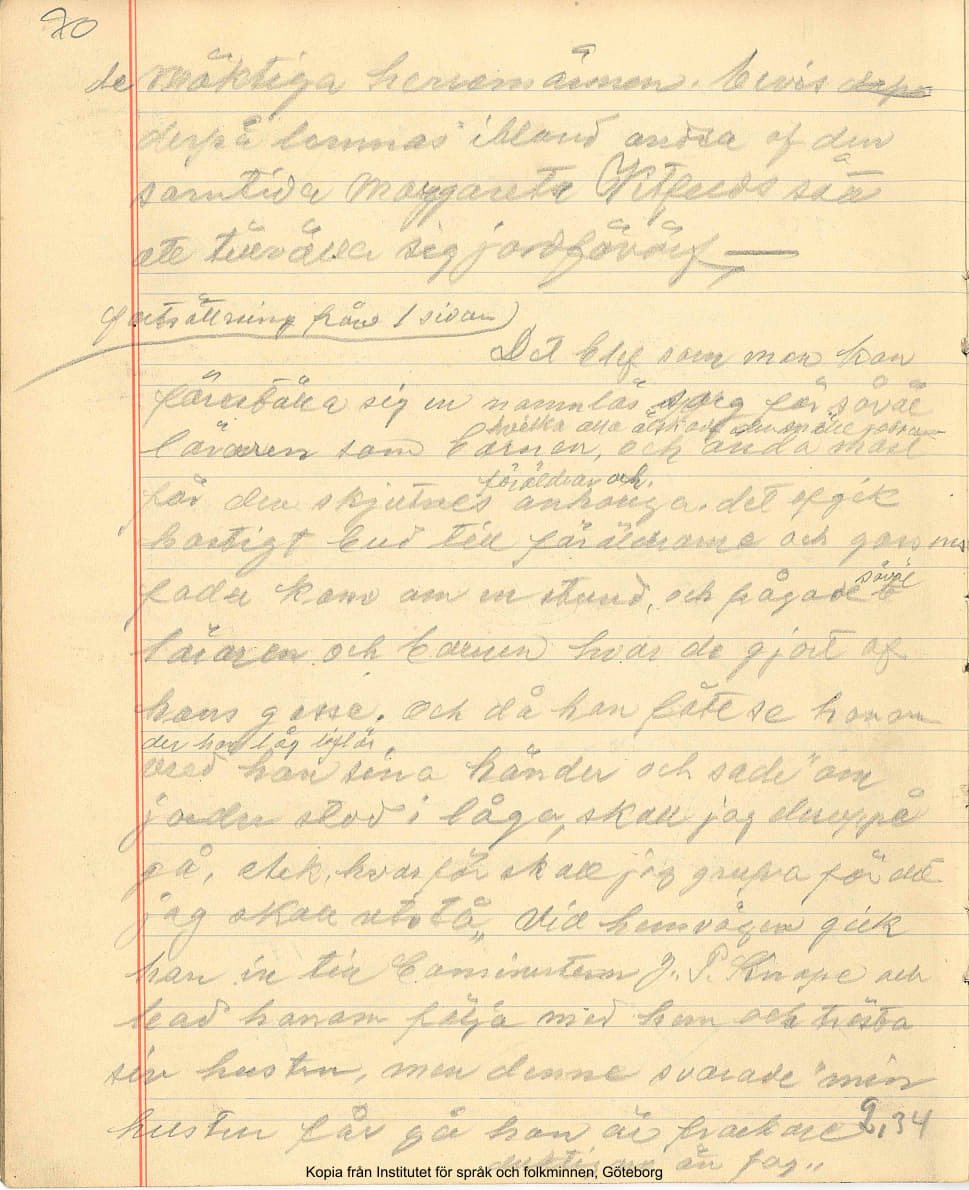 20
de mäktiga herremännen. Bevis
derpå lemnas ibland andra af den
samtida Margareta sätt
att tillvälla sig jordförvärf —
fortsättning från 1 sidan)
Det blef som man kan
föreställa sig en namnlös sorg för såväl
hvilka alla älskade den snälle gossen
läraren som barnen, och ända mest
föräldrar och
för den skjutnes anhöriga. det afgik
hastigt bud till föräldrarne och gossens
fader kom om en stund, och frågade
såväl
läraren och barnen hvar de gjort af
hans gosse. Och då han fått se honom
der han låg liflös
vred han sina händer och sade "om
jorden stod i låga, skall jag deruppå
gå, ack, hvarför skall jag grufva för det
jag skall utstå„ Vid hemvägen gick
han in till J. P. Knape och
bad honom följa med hem och trösta
sin hustru, men denne svarade "min
hustru får gå hon är
2,34
än jag„
Kopia från Institutet för språk och folkminnen, Göteborg